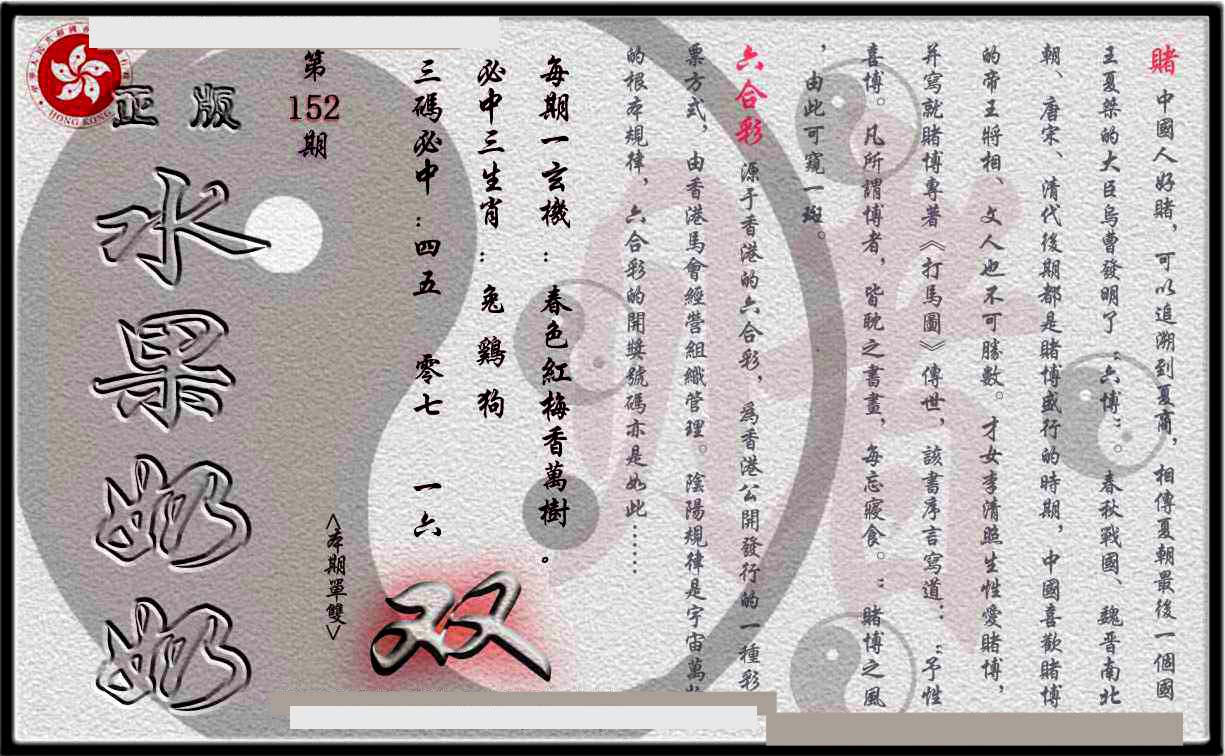 賭 中國人好賭，可以追溯到夏商，相傳夏朝最後一個國
王夏桀的大臣烏曹發明了“六博”。春秋戰國、魏晋南北
朝、唐宋、清代後期都是賭博盛行的時期，中國喜歡賭博
的帝王將相、文人也不可勝數。才女李清照生性愛賭博，
并寫就賭博專著《打馬圖》傳世，該書序言寫道：“予性
喜博。凡所謂博者，皆耽之書畫，每忘寢食。”賭博之風
，由此可窺一斑。
六合彩 源于香港的六合彩，爲香港公開發行的一種彩
票方式，由香港馬會經營組織管理。陰陽規律是宇宙萬
的根本規律，六合彩的開獎號碼亦是如此……
每期一玄機：春色紅梅香萬樹。
必中三生肖：兔 鷄 狗
三碼必中：四五 零七 一六
双
<本期單雙>
第
152
期
正版
水果奶奶
HONG KONG